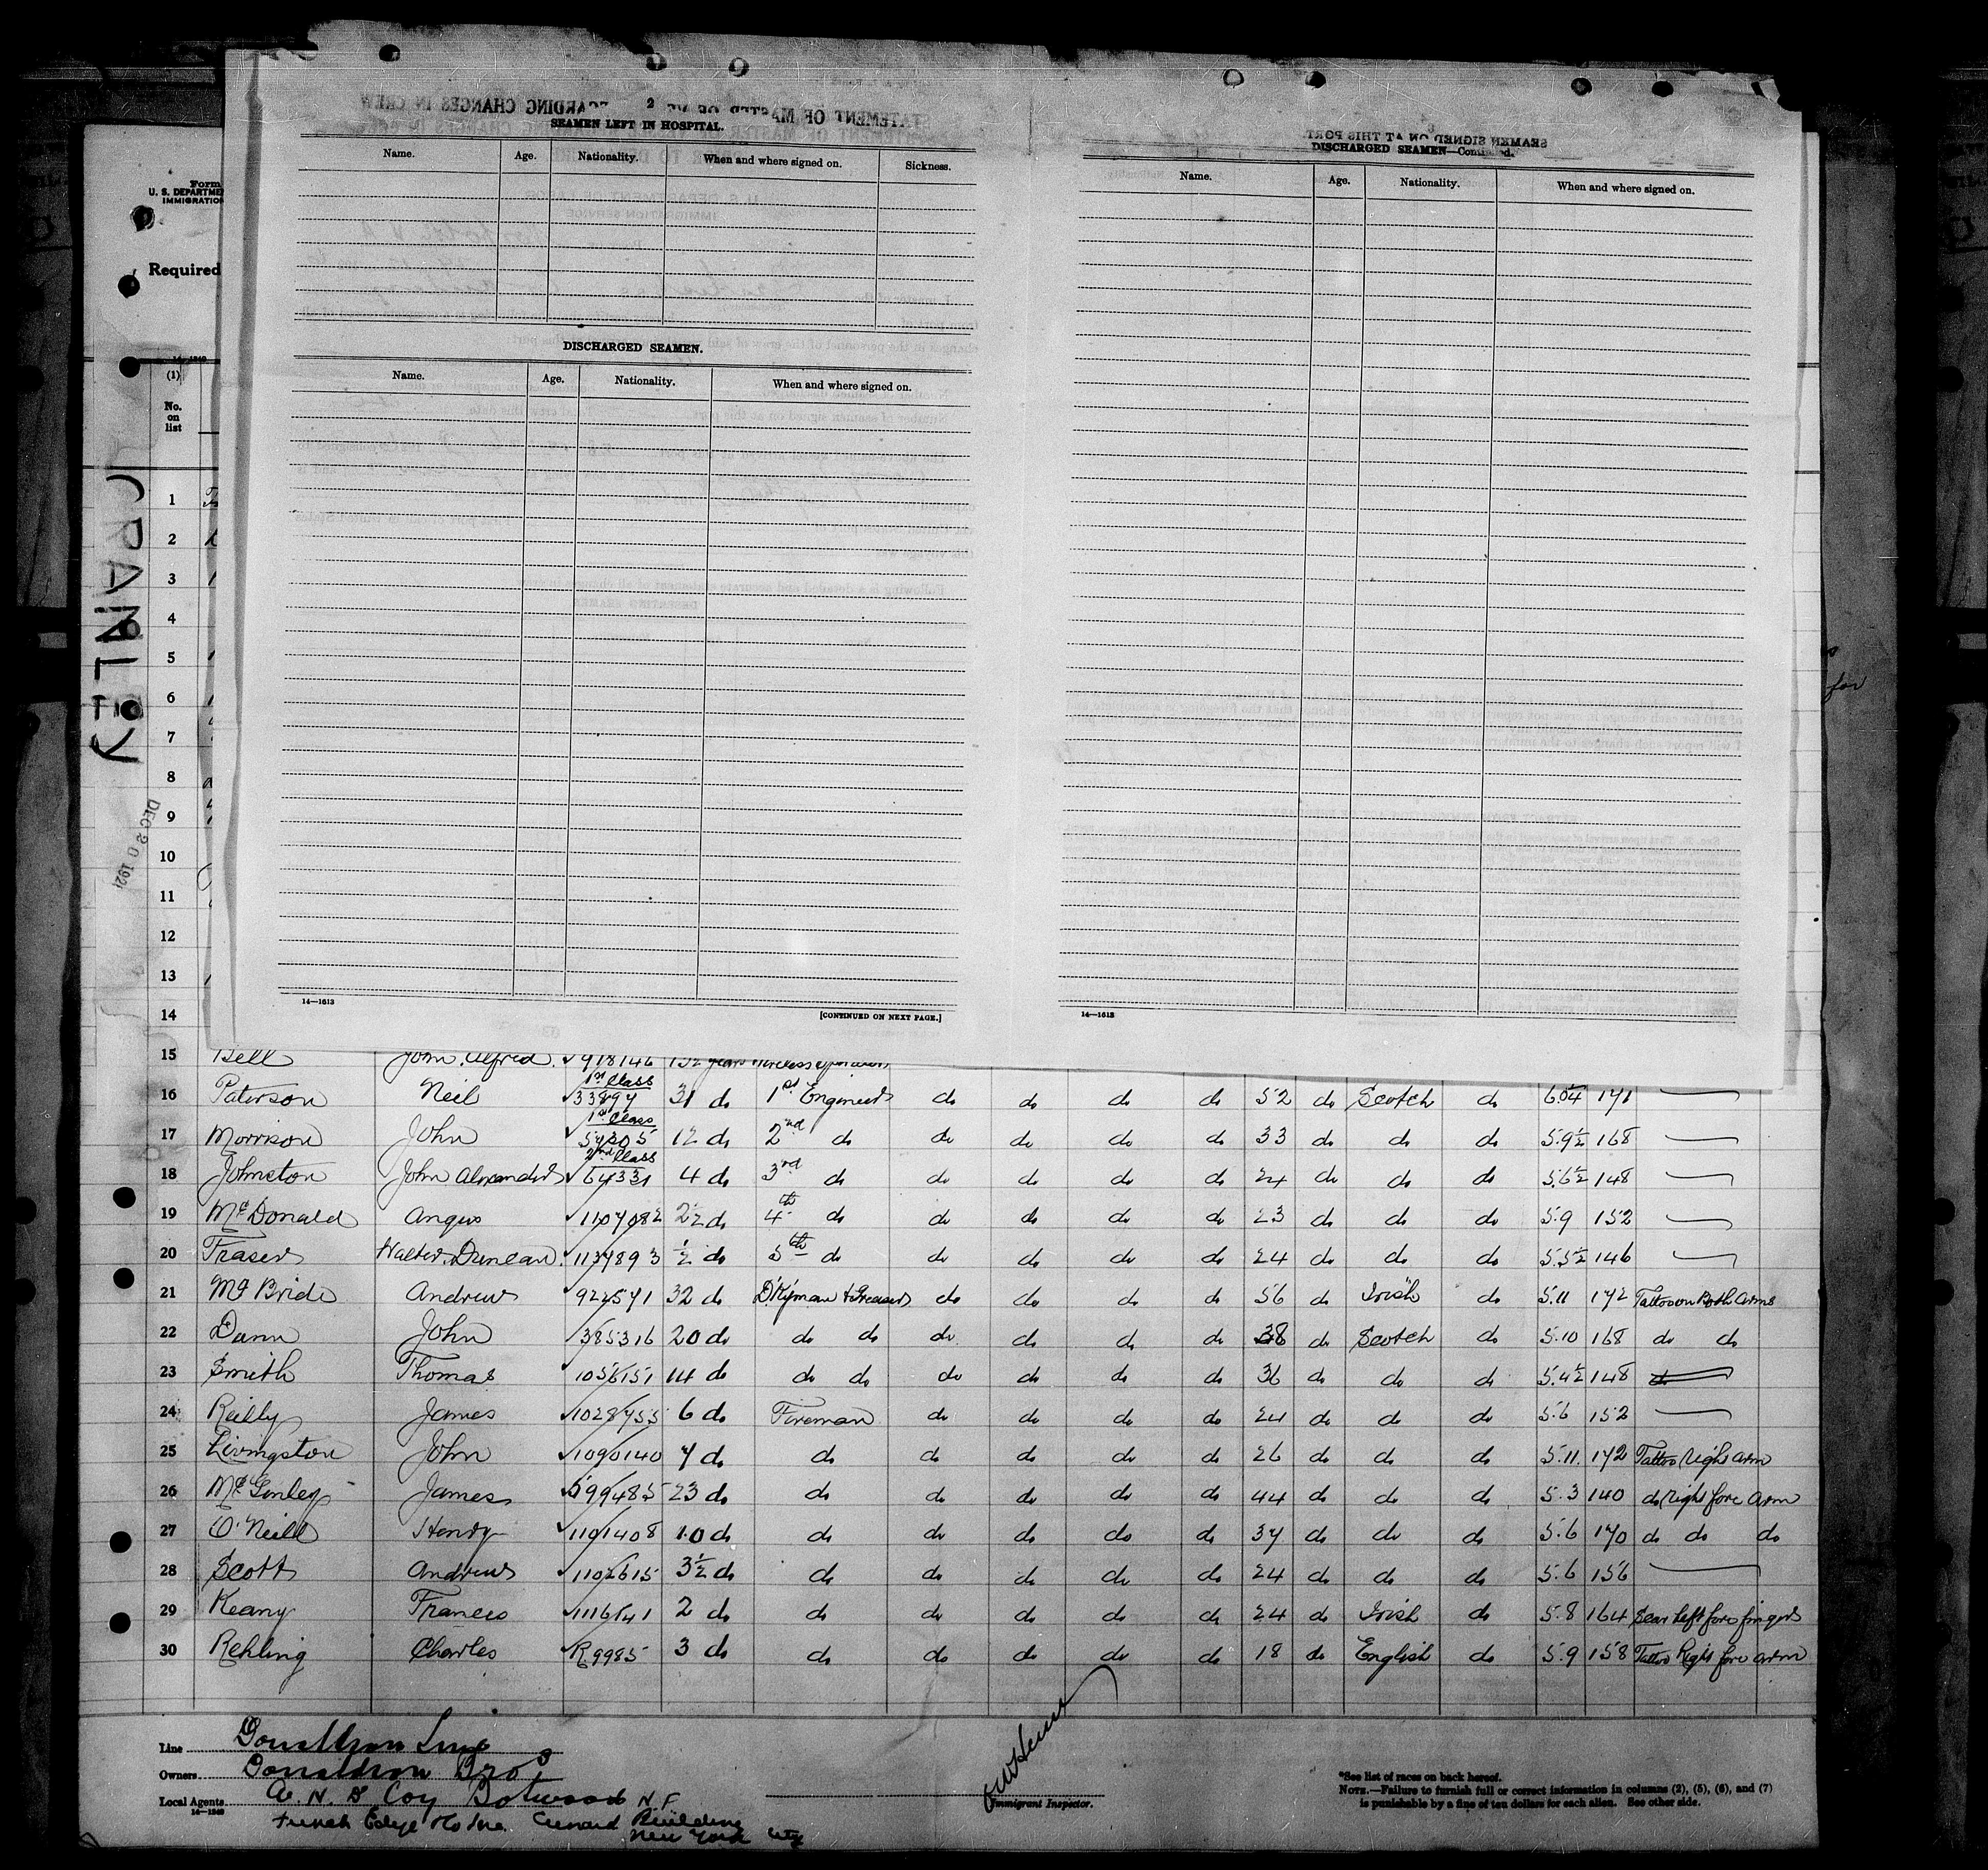 SEAMEN LEFT IN HOSPITAL.
Name. Age. Nationality. When and where signed on. Sickness.
DISCHARGED SEAMEN.
Name. Age. Nationality. When and where signed on.
14—1613 [CONTINUED ON NEXT PAGE.]
DISCHARGED SEAMEN—Continued.
Name. Age. Nationality. When and where signed on.
14—1613
Form
U. S. DEPARTME
IMMIGRATION
Required
(1)
No.
on
list
CRANLEY
DEC 20 192
1
2
3
4
5
6
7
8
9
10
11
12
13
14
15 Bell John Alfred. 918146 1 1/2 years Wireless Operator
16 Paterson Neil 1st Class 33894 31 do 1st Engineer do do do do 52 do Scotch do 6.0 1/4 171
17 Morrison John 1st Class 54205 12 do 2nd do do do do do 33 do do do 5.9 1/2 168
18 Johnston John Alexander 2nd Class 64331 4 do 3rd do do do do do 24 do do do 5.6 1/2 148
19 McDonald Angus 1107082 2 1/2 do 4th do do do do do 23 do do do 5.9 152
20 Fraser Walter Duncan. 1137893 1/2 do 5th do do do do do 24 do do do 5.5 1/2 146
21 McBride Andrew 922571 32 do D'kyman & Greaser do do do do 56 do Irish do 5.11 172 Tattoo on Both Arms
22 Dann John 385316 20 do do do do do do do 38 do Scotch do 5.10 168 do do
23 Smith Thomas 1056151 14 do do do do do do do 36 do do do 5.4 1/2 148
24 Reilly James 1028755 6 do Fireman do do do do 24 do do do 5.6 152
25 Livingston John 1090140 7 do do do do do do 26 do do do 5.11. 172 Tattoo Right Arm
26 McGinley James 599485 23 do do do do do do 44 do do do 5.3 140 do Right fore Arm
27 O'Neill Henry 1101408 10 do do do do do do 37 do do do 5.6 170 do do do
28 Scott Andrew 1102615 3 1/2 do do do do do do 24 do do do 5.6 156
29 Keany Francis 1116141 2 do do do do do do 24 do Irish do 5.8 164 Scar Left fore finger
30 Rehling Charles R9985 3 do do do do do do 18 do English do 5.9 158 Tattoo Right fore arm
Line Donaldson Line
Owners Donaldson Bros
Local Agents A. N. D Coy Botwood N.F
14—1240
Furness Building
New York City
Immigrant Inspector.
*See list of races on back hereof.
NOTE.—Failure to furnish full or correct information in columns (2), (5), (6), and (7)
is punishable by a fine of ten dollars for each alien. See other side.